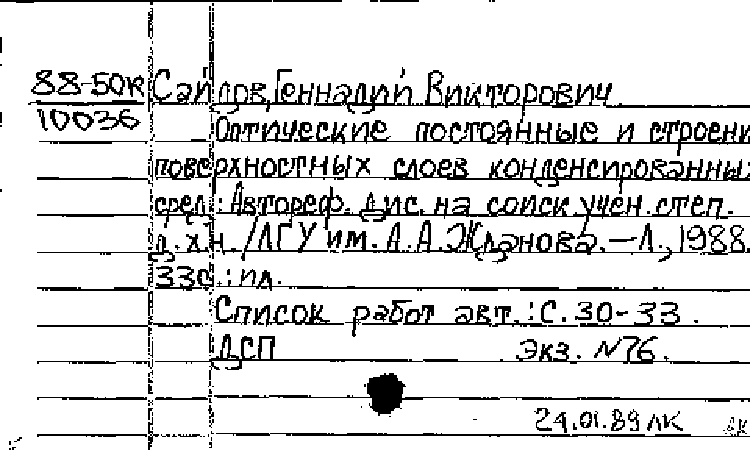 88-50к Сайлов, Геннадий Викторович
10036 Оптические постоянные и строени
поверхностных слоев конденсированных
сред: Автореф. дис. на соиск. учен. степ.
д.х.н. /ЛГУ им. А.А.Жданова.—Л., 1988.
33с.: ил.
Список работ авт.: С.30-33.
ДСП Экз. №76.
24.01.89 ЛК